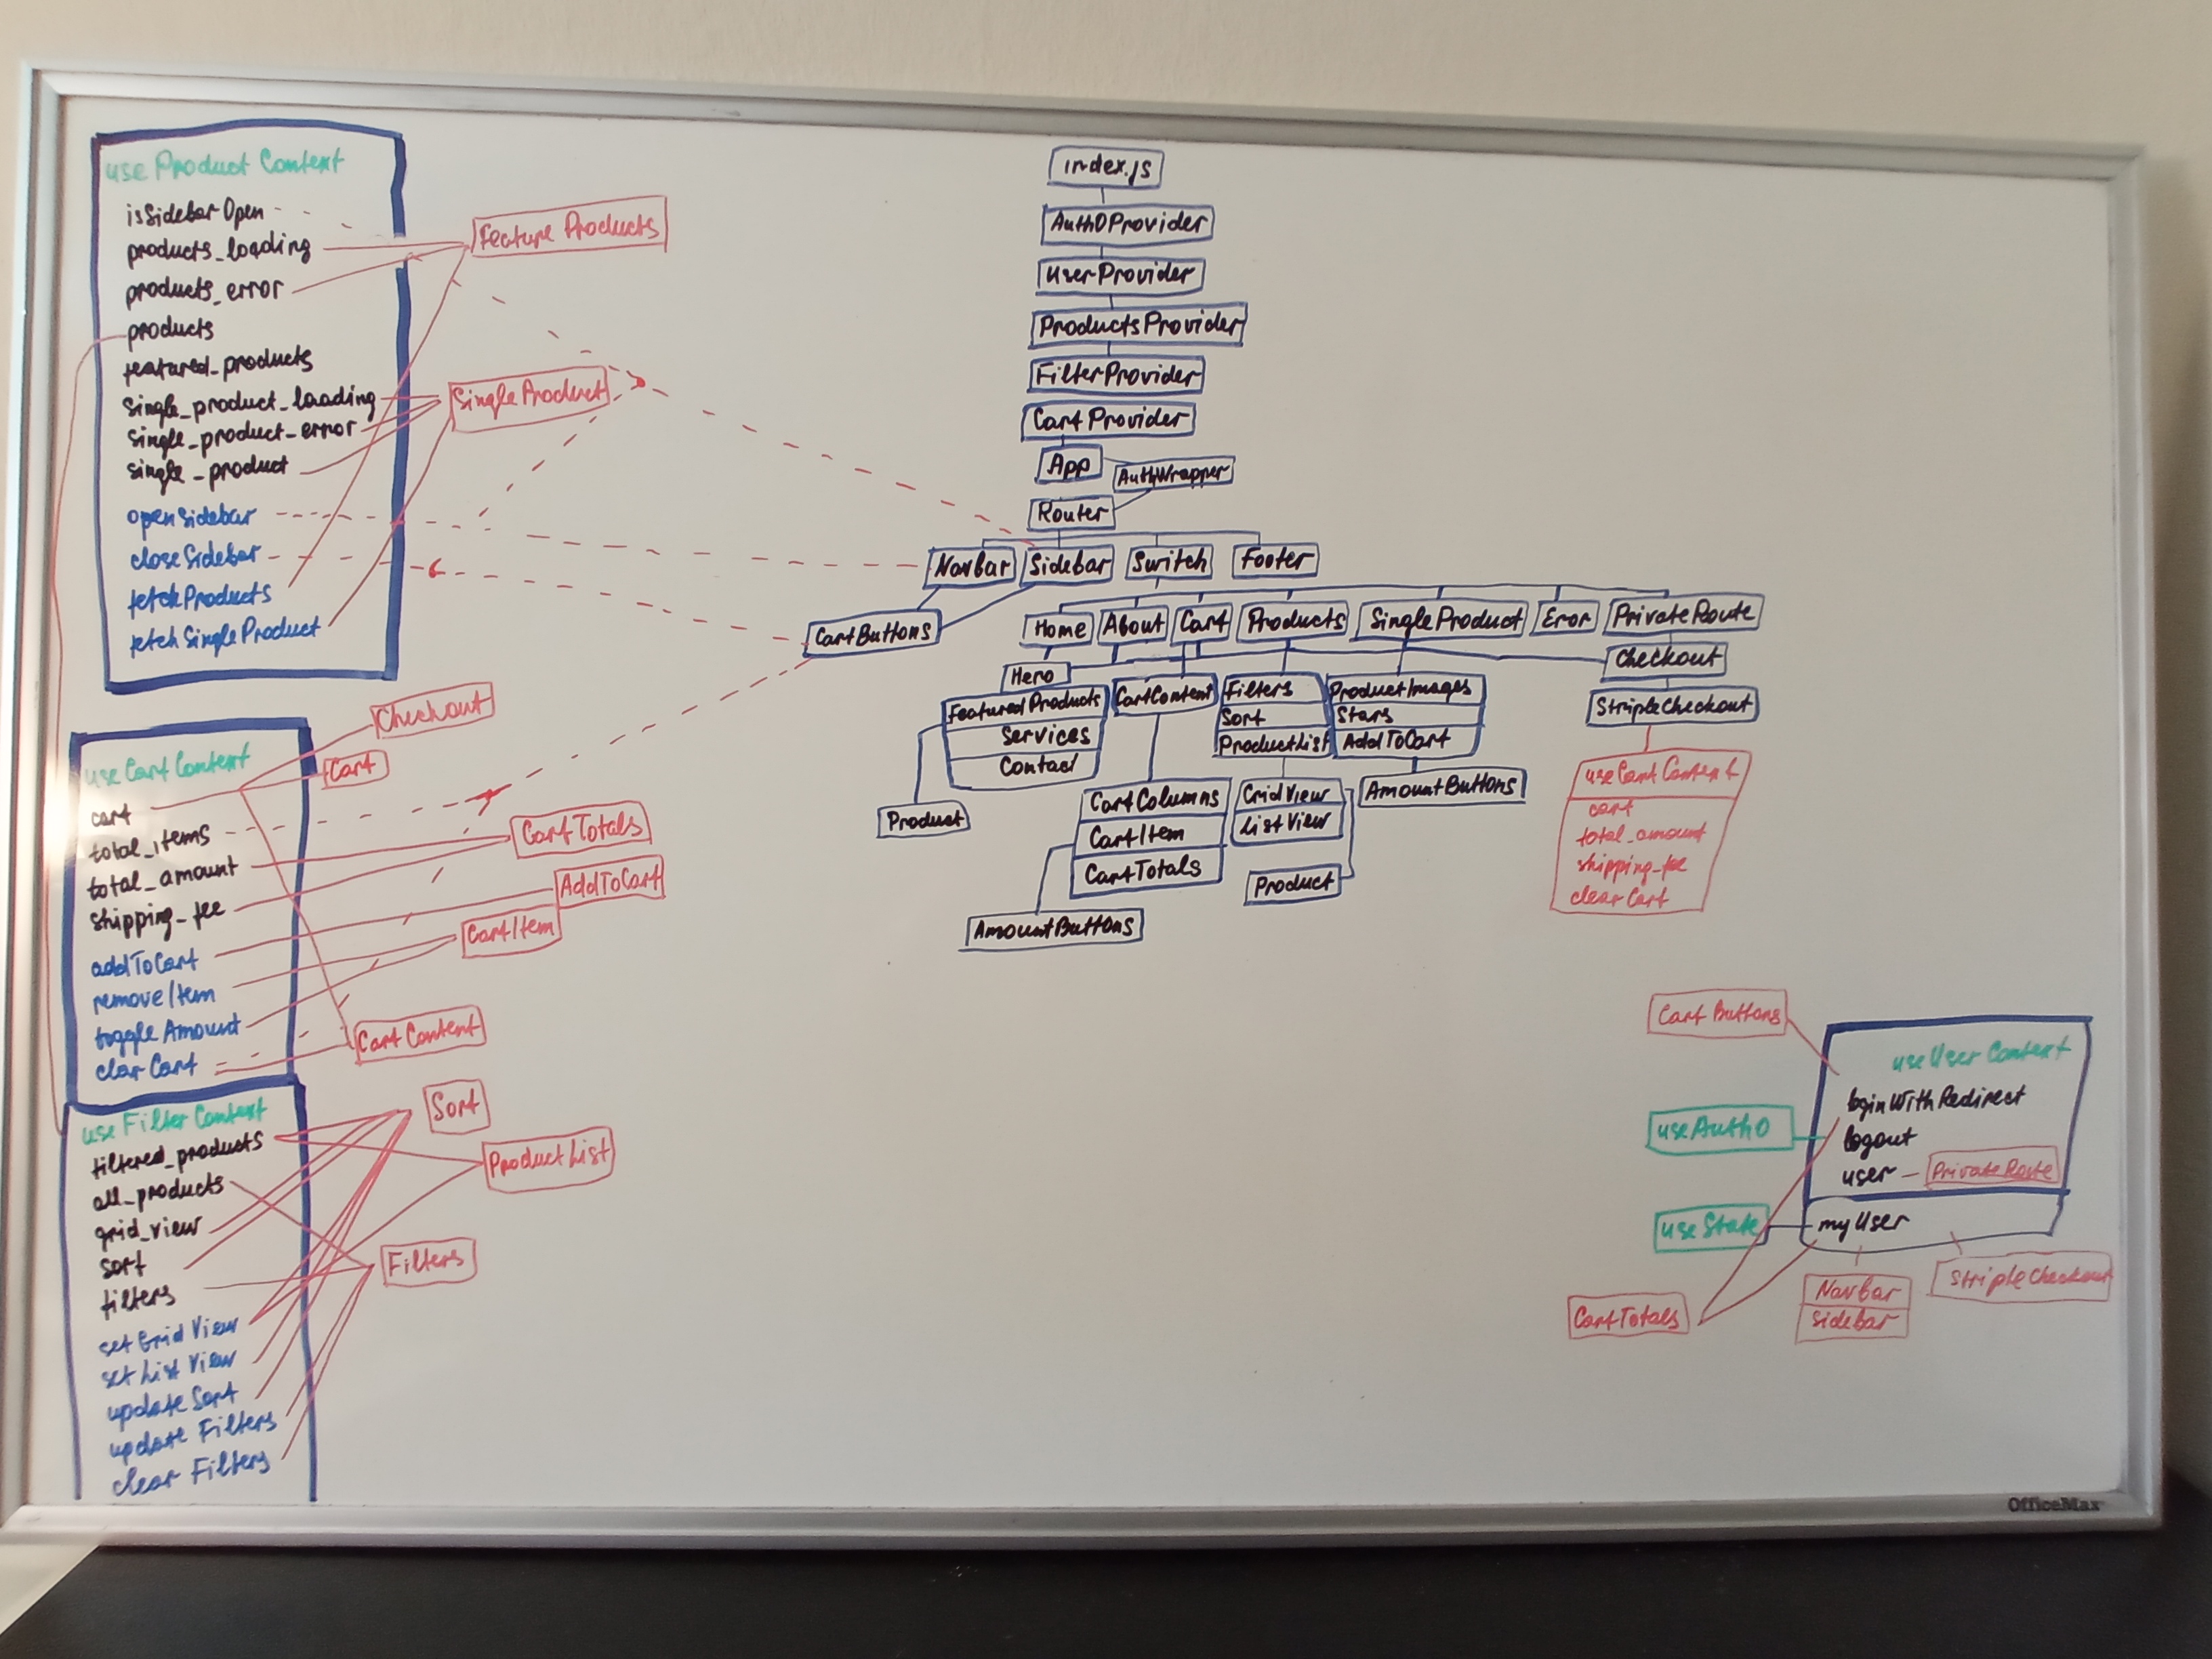 use Product Context
isSidebarOpen
products_loading
products_error
products
featured_products
single_product_loading
single_product_error
single_product
openSidebar
closeSidebar
fetchProducts
fetchSingleProduct
Feature Products
SingleProduct
use Cart Context
cart
total_items
total_amount
shipping_fee
addToCart
removeItem
toggleAmount
clarCart
Checkout
Cart
CartTotals
AddToCart
CartItem
CartContent
use Filter Context
filtered_products
all_products
grid_view
sort
filters
set Grid View
set List View
update Sort
update Filters
clear Filters
Sort
ProductList
Filters
index.js
Auth0Provider
UserProvider
ProductsProvider
FilterProvider
CartProvider
App
AuthWrapper
Router
Navbar
Sidebar
Switch
Footer
CartButtons
Home
About
Cart
Products
SingleProduct
Eror
PrivateRoute
Checkout
StripleCheckout
Hero
FeaturedProducts
Services
Contact
Product
CartContent
CartColumns
CartItem
CartTotals
AmountButtons
Filters
Sort
ProductList
GridView
ListView
Product
ProductImages
Stars
AddToCart
AmountButtons
useCartContext
cart
total_amount
shipping_fee
clearCart
Cart Buttons
useUser Context
loginWithRedirect
logout
user
PrivateRoute
useAuth0
useState
myUser
CartTotals
Navbar
Sidebar
StripleCheckout
OfficeMax